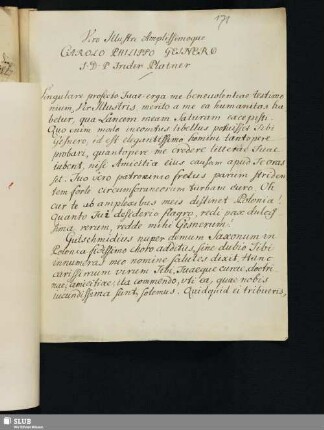 171
Viro Illustri Amplissimoque
CAROLO PHILIPPO GESNERO
S. D. P. Frider. Platner
Singulare profecto Tuae erga me benevolentiae testimo
nium, Vir Illustris, merito a me ea humanitas ha
betur, qua Lancem meam Saturam excepisti.
Quo enim modo incomtus libellus potuisset Tibi
Gesnero, id est elegantissimo homini tantopere
probari, quantopere me credere litterae Tuae
iubent, nisi Amicitia eius causam apud Te oras
set. Tuo vero patrocinio fretus parum striden
tem foris circumforaneorum turbam curo. Oh
cur te ab amplexibus meis distinet Polonia!
Quanto Tui desiderio flagro, redi pax dulcis
sima rerum, redde mihi Gesnerum!
Gutschmidius nuper demum Saxonum in
Polonia fidissimo choro additus, sine dubio Tibi
innumeras meo nomine salutes dixit. Hunc
carissimum virum Tibi, Tuaeque curae, doctri
nae, amicitiae, ita commendo, uti ea, quae nobis
iucundissima sunt, solemus. Quidquid ei tribueris,
SLUB